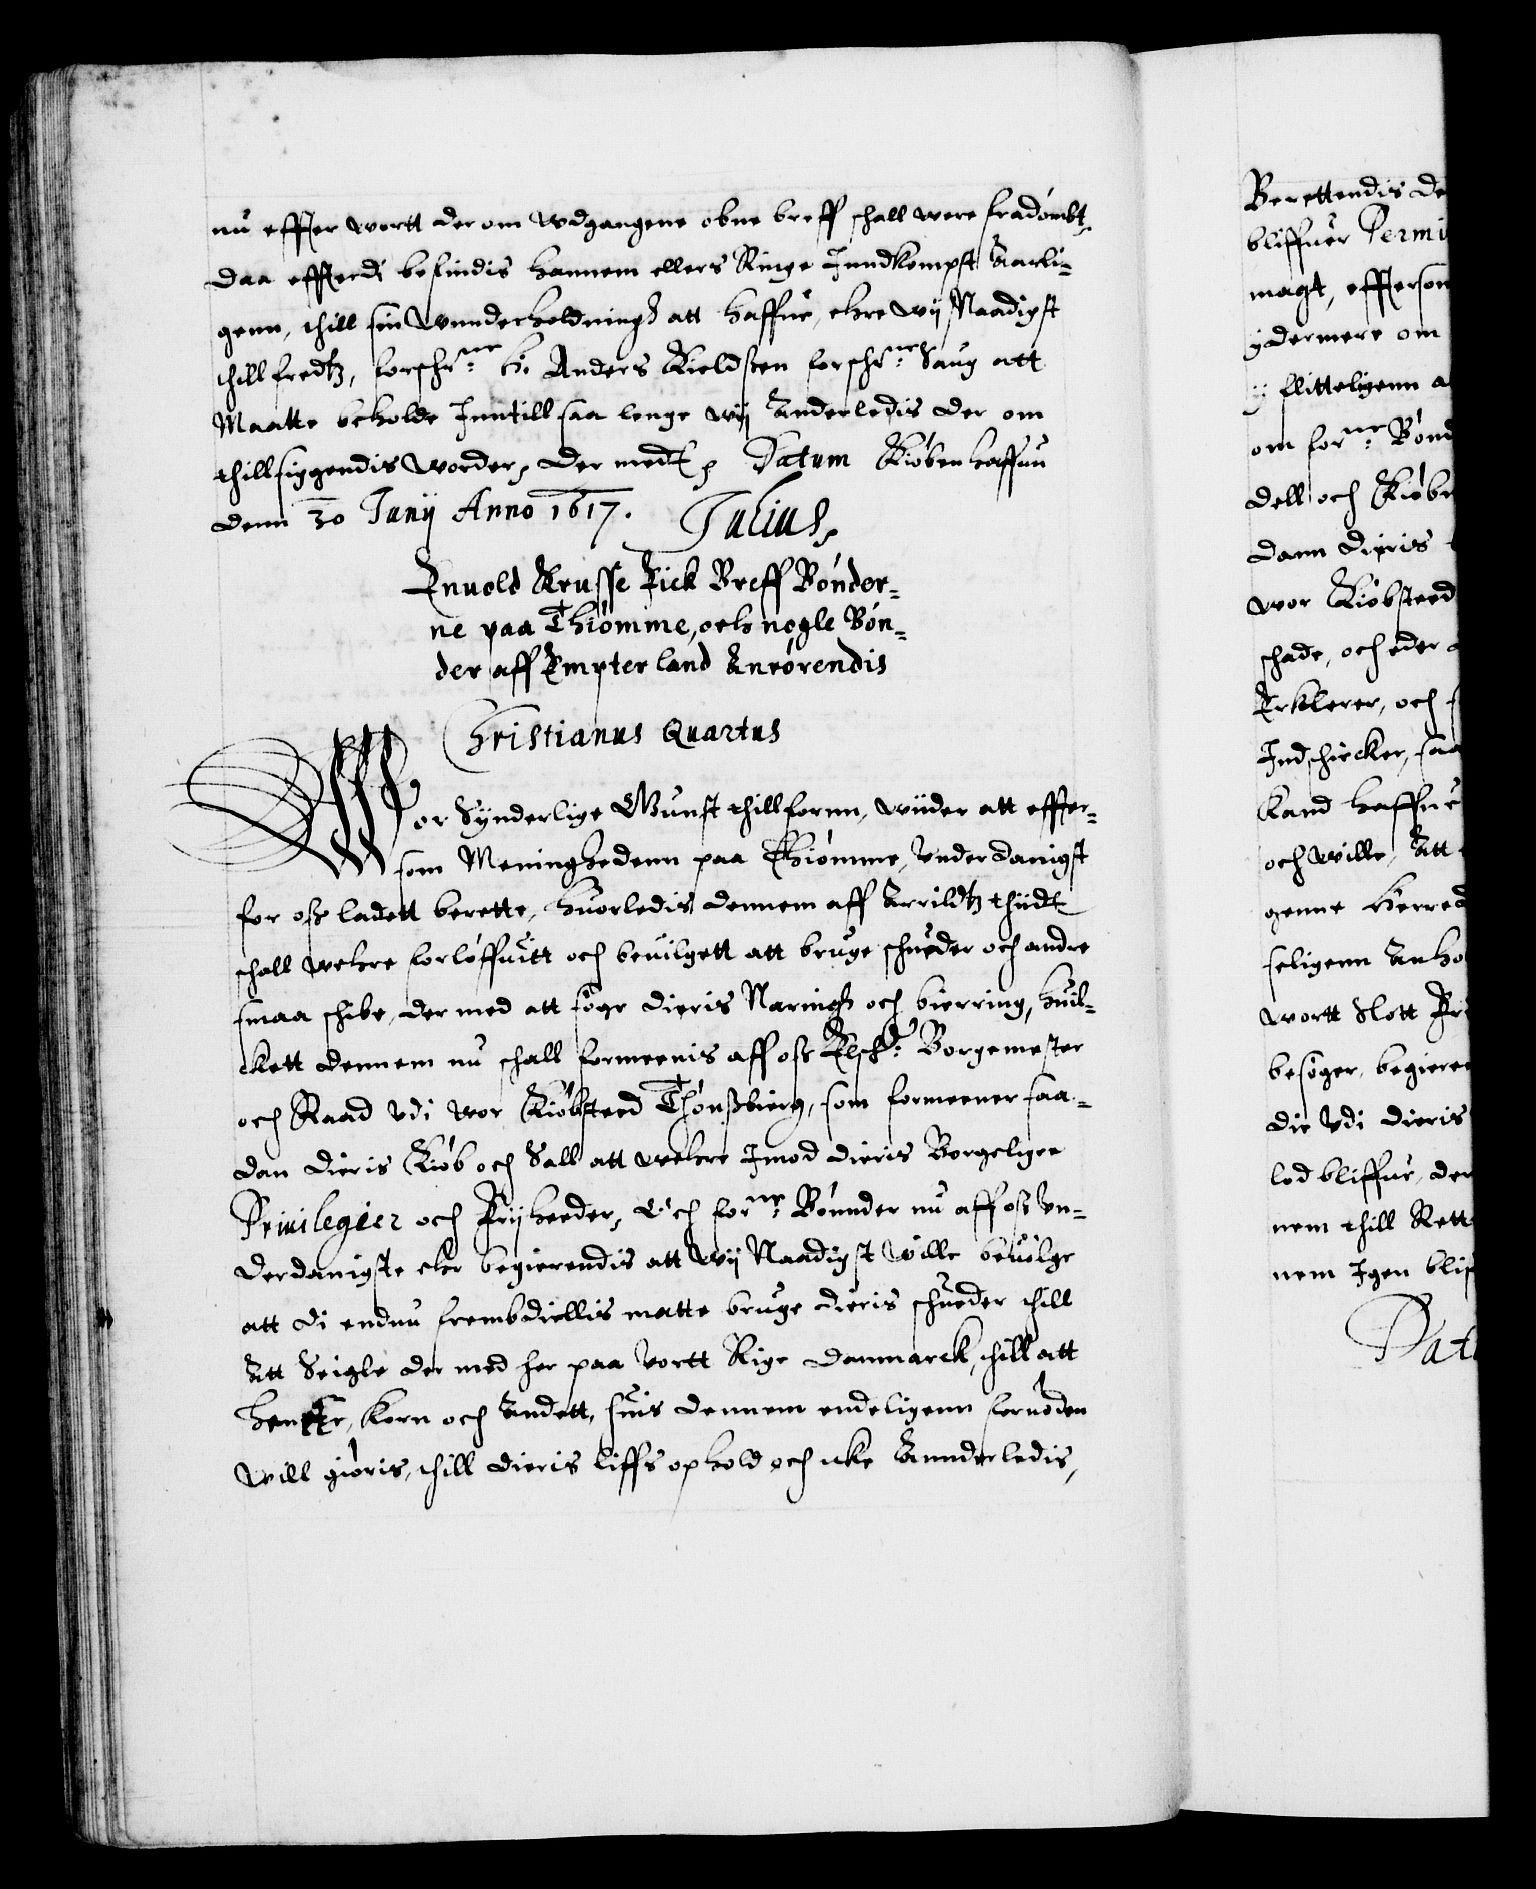 nu effter wortt der om wdgangene obne breff schall were fradömbt,
daa effterdi befindis hannem ellers Ringe Inndkompst Aarli-
genn, thill sin wnnderholdningh att haffue, ehre wij Naadigst
thill fredtz, forschr:ne H: Anders Kieldssen forschr:ne Saug att
Maatte beholde Inntill saa lenge wij Anderledis der om
thillsiggendis worder, der medt Datum Kiöbenhaffnn
denn 30 Junij Anno 1617. Julius,
Enuold Krusse Fick Breff Bönder-
ne paa Thiömme, och nogle Bön-
der aff Empterland Anrörendis
Christianus Quartus
Wor Synderlige Gunst thillfornn, wiider att effter-
som Meninghedenn paa Thiömme, Underdanigst
for oss ladett berette, huorledis dennem aff Arrildtz thiidt
schall wehre forlöffuitt och beuilgett att bruge schueder och andre
smaa schibe, der med att söge dieris Naringh och bierring, huil-
ckett dennem nu schall formeenis aff oss Elsch: Borgemester
och Raad Udi wor Kiöbsteed Thönssbierg, som formeener saa-
dan dieris Kiöb och Sall att wehre Imod dieris Borgelige
Priuilegier och Friiheeder, Och for:ne Bönnder nu aff oss Un-
derdanigste ehr begierendis att wij Naadigst wille beuilge
att di endnu frembdiellis matte bruge dieris schueder thill
Att Seigle der med her paa Vortt Rige Danmarck, thill att
hennter, Korn och Andett, huis dennem endeligenn fornöden
will giöris, thill dieris liffs ophold och icke Annderledis,
Berettendis de
bliffuer Permi
magt, effterson
ydermere om
ij flitteligenn a
om for:ne Bönd
dell och Kiöb
dann dieris
wor Kiöbsteed
schade, och eder
Erklerer, och
Indschicker, saa
Kand haffue
och wille, Att
genne Herred
seligenn Anho
wortt Slott
besöger, begieree
die Udi dieris
lod bliffue, der
nem thill Rett
nem Igen blif
Dat